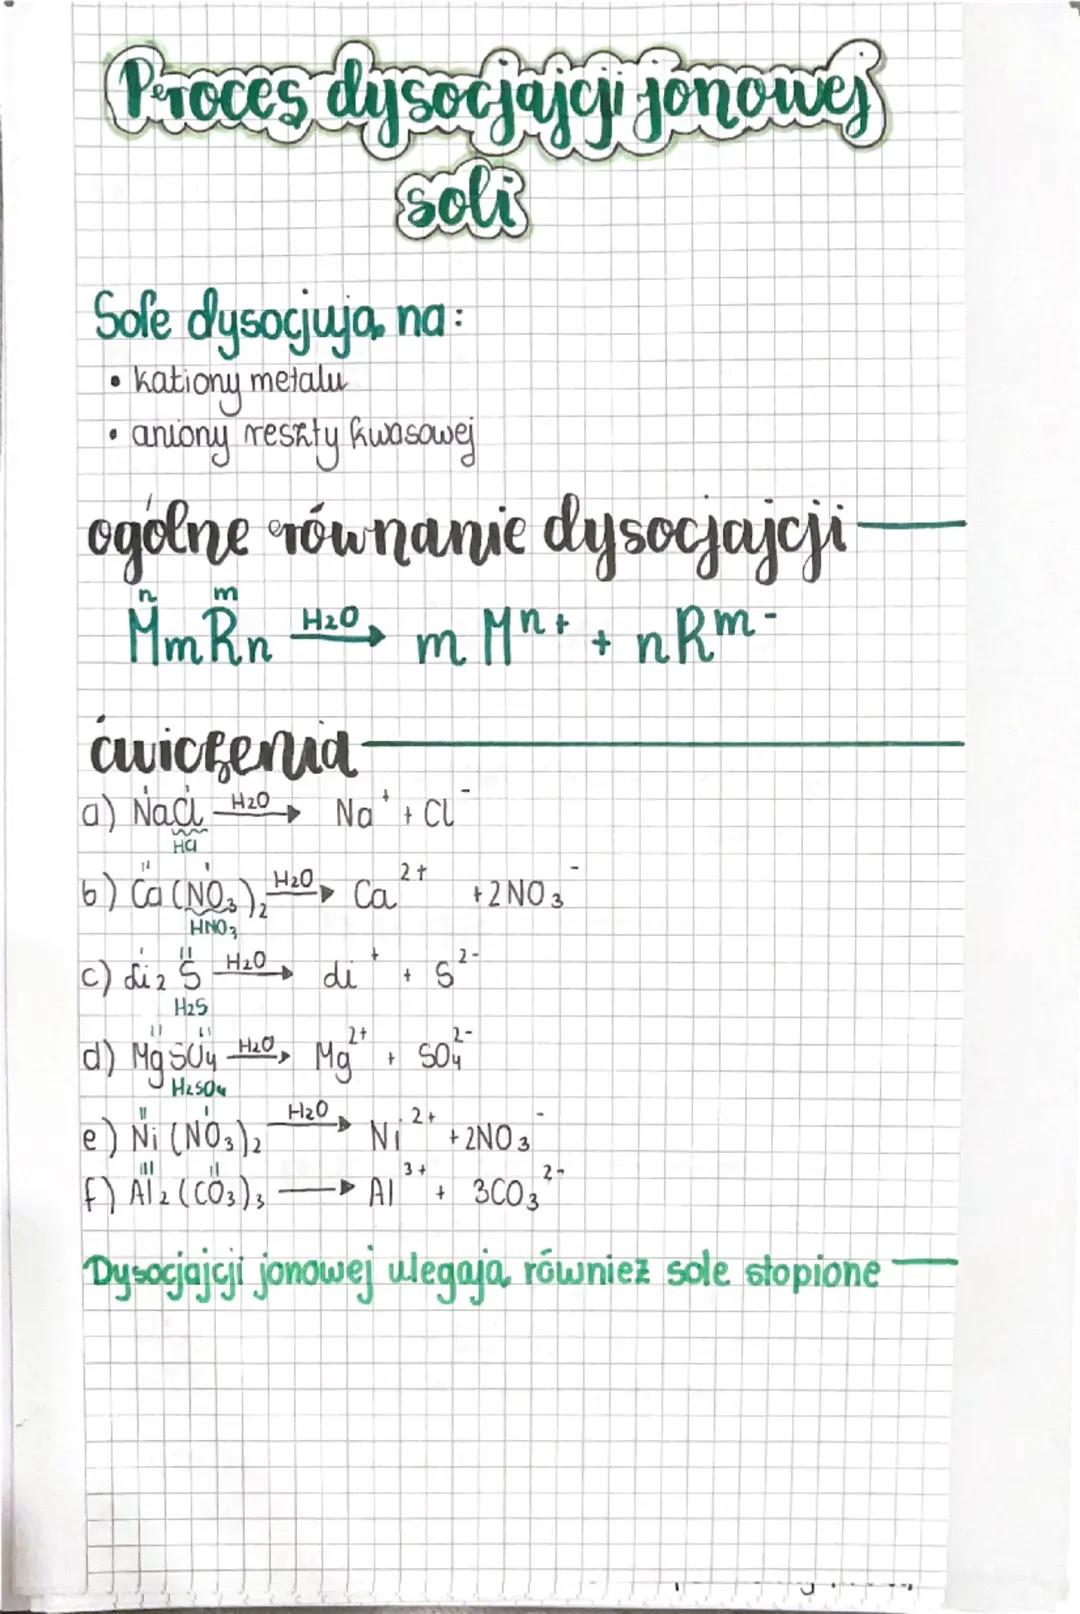 Proces dysocjajcji jonowej
soli
Sole dysocjują na:
• kationy metalu
• aniony reszty kwasowej
ogólne równanie dysocjajcji
n m
MmRn H2O → m Mn+ + nRm-
ćwiczenia
a) NaCl H2O → Na+ + Cl-
HCl
b) Ca(NO3)2 H2O → Ca2+ + 2NO3-
HNO3
c) Li2S H2O → Li+ + S2-
H2S
d) MgSO4 H2O → Mg2+ + SO42-
H2SO4
e) Ni(NO3)2 H2O → Ni2+ + 2NO3-
f) Al2(CO3)3 → Al3+ + 3CO32-
Dysocjajcji jonowej ulegają również sole stopione